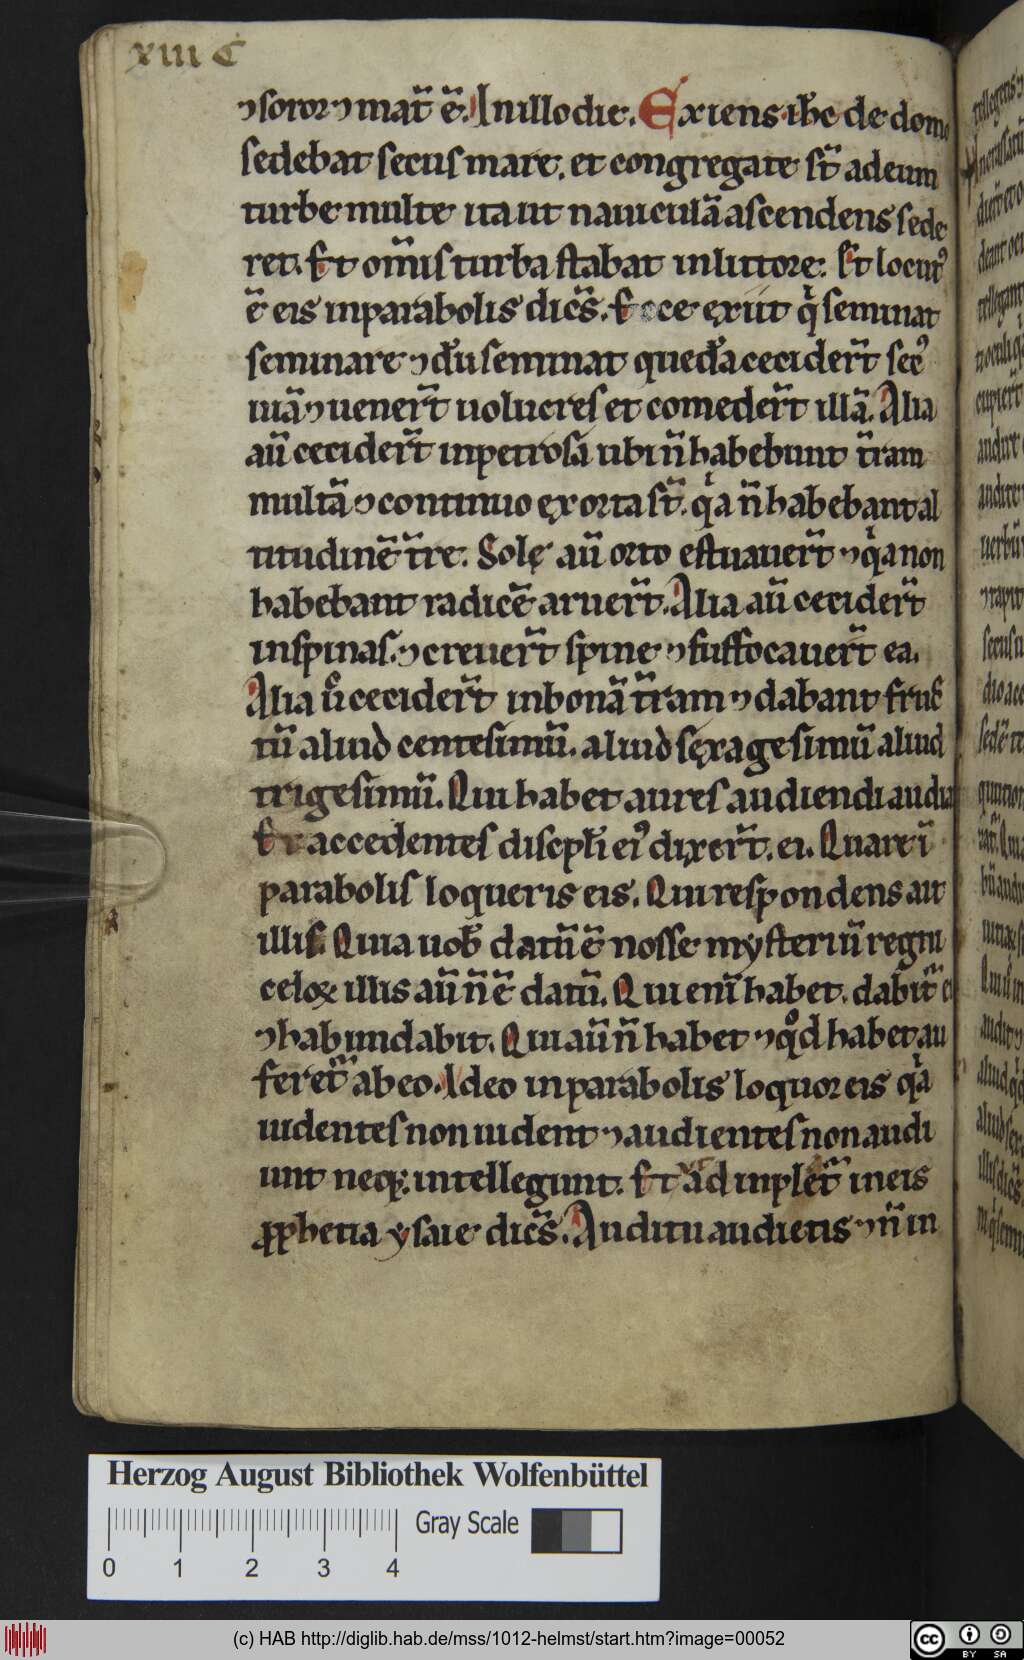 xiii C
⁊ soror ⁊ mat̄ ē. In illo die. Exiens ih̄c de domo
sedebat secus mare. et congregate st̄ ad eum
turbe multe ita ut nauiculā ascendens sede
ret. Et om̄is turba stabat in littore. Et locut᷒
ē eis in parabolis dicēs. Ecce exiit q̇ seminat
seminare ⁊ dū seminat quedā cecider̄t sec᷒
uiā ⁊ uener̄t uolucres et comeder̄t illā. Alia
aū cecider̄t in petrosa ubi n̄ habebunt t̄ram
multā ⁊ continuo exorta st̄. q̇a n̄ habebant al
titudinē t̄re. Sole aū orto estuauer̄t ⁊ q̇a non
habebant radicē aruer̄t. Alia aū cecider̄t
in spinas. ⁊ creuer̄t spine ⁊ suffocauer̄t ea.
Alia ů cecider̄t in bonā t̄ram ⁊ dabant fruc
tū aliud centesimū. aliud sexagesimū aliud
trigesimū. Qui habet aures audiendi audia
Et accedentes discipłi ei᷒ dixer̄t. ei. Quare ī
parabolis loqueris eis. Qui respondens ait
illis. Quia uob̄ datū ē nosse mysteriū regni
celoꝝ illis aū n̄ ē datū. Qui enī habet. dabit̄ ei
⁊ habundabit. Qui aū n̄ habet ⁊ q̊d habet au
feret̄ ab eo. Ideo in parabolis loquor eis q̇a
uidentes non uident ⁊ audientes non audi
unt neqꝫ intellegunt. Et ad inplet̄ in eis
ꝓphetia ysaie dicēs. Auditu audietis ⁊ n̄ in
Herzog August Bibliothek Wolfenbüttel
Gray Scale
0 1 2 3 4
(c) HAB http://diglib.hab.de/mss/1012-helmst/start.htm?image=00052
cc BY SA